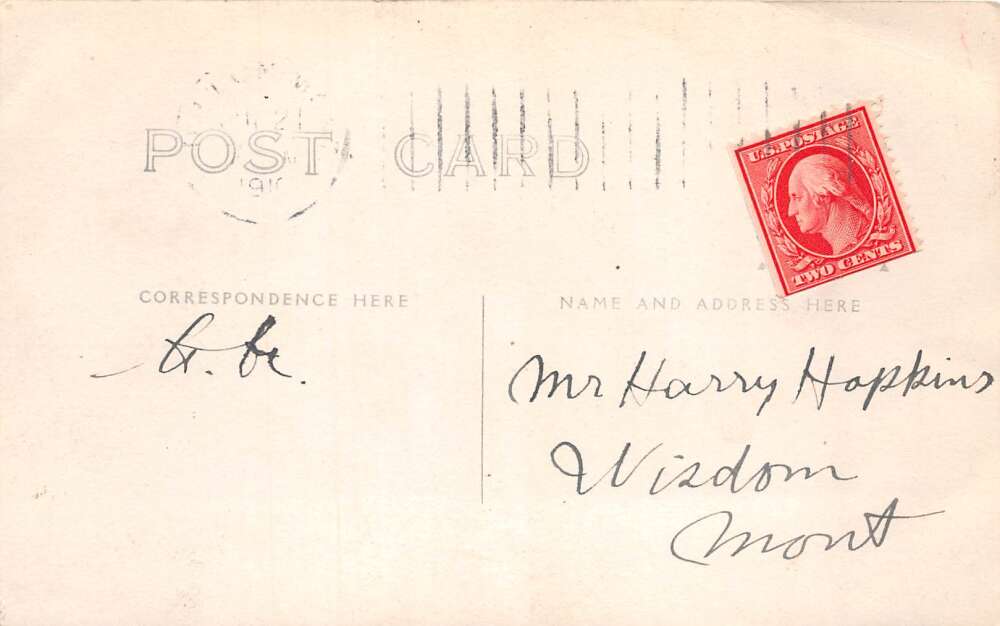 POST CARD
1910
U.S. POSTAGE
TWO CENTS
CORRESPONDENCE HERE
NAME AND ADDRESS HERE
Mr Harry Hopkins
Wisdom
Mont